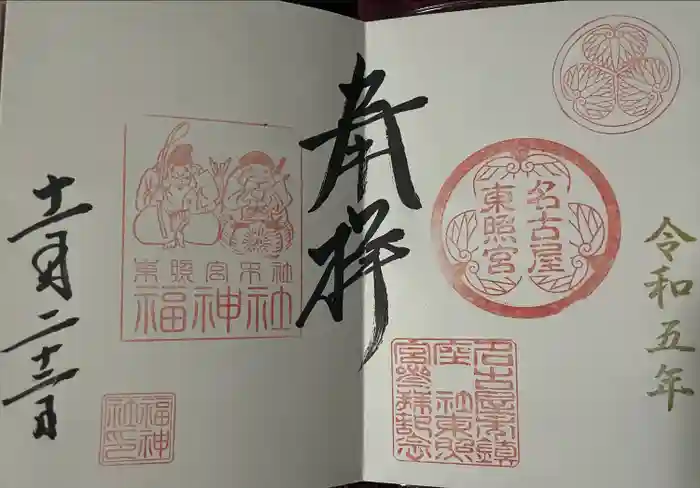 令和五年
名古屋
東照宮
名古屋市鎮
座 社東照
宮参拝記念
奉拝
東照宮末社
福神社
十一月二十三日
福神
社印